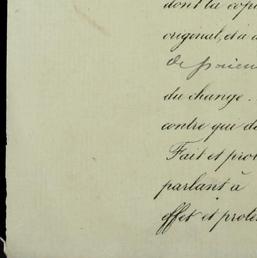 dont la copi
original, et à d
de paiem
du change.
contre que de
Fait et prov
parlant à
effet et prote